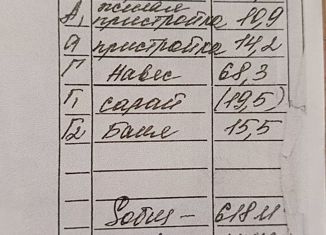 А₁ жилая пристройка 10,9
а пристройка 14,2
Г Навес 68,3
Г₁ сарай (19,5)
Г2 Баня 15,5
Sобщ — 618 м